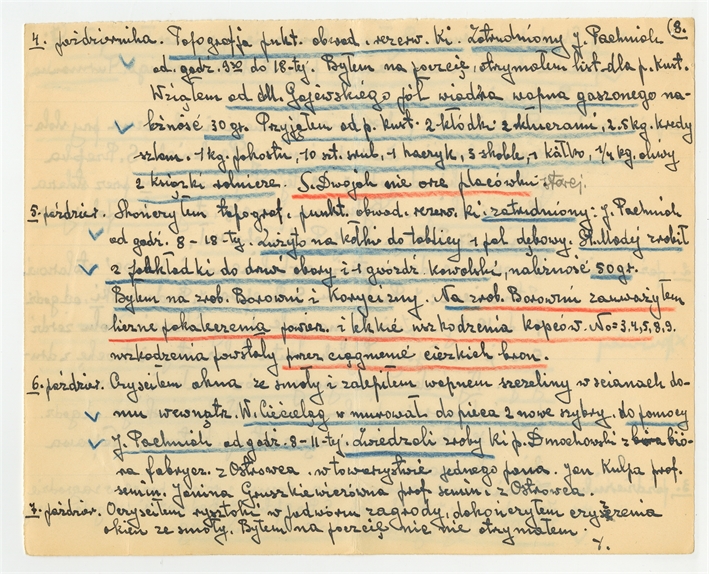 8.
4. październiku. Topografja punkt. obwod. rezerw. ki. Zatrudniony J. Pachniak
od. godz. 9³⁰ do 18-tej. Byłem na poczcie, otrzymałem list dla p. kust.
Wziąłem od M. Gajewskiego pół wiadra wapna gaszonego na-
leżność 30 gr. Przyjąłem od p. kust. 2 kłódki z kluczami, 2.5 kg. kredy
szlam. 1 kg. pokostu, 10 szt. śrub, 1 haczyk, 3 skoble, 1 kółko, ¼ kg. oliwy
2 książki rolnicze. S. Dwojak nie orze placówki starej.
5. paździer. Skończyłem topograf. punkt. obwod. rezerw. ki. zatrudniony: J. Pachniak
od godz. 8 - 18-tej. Zużyto na kołki do tablicy 1 pal dębowy. St. Młodej zrobił
2 podkładki do drzw. obory i 1 gwóźdź kowalski, należność 50 gr.
Byłem na zrob. Borowni i Korycizny. Na zrob. Borowni zauważyłem
liczne pokaleczenia powierz. i lekkie uszkodzenia kopców. No = 3. 4, 5, 8, 9.
uszkodzenia powstały przez ciągnienie ciężkich bron.
6. paździer. Oczyściłem okna ze smoły i zalepiłem wapnem szczeliny w ścianach do-
mu wewnątrz. W. Ciecieląg wmurował do pieca 2 nowe szybry. do pomocy
J. Pachniak od godz. 8 - 11-tej. Zwiedzali zroby ki p. Dmochowski z biu-
ra fabrycz. z Ostrowca. w towarzystwie jednego pana. Jan Kulpa prof.
semin. Janina Gruszkiewiczówna prof. semin. z Ostrowca.
7. paździer. Oczyściłem rysztoki w podwórzu zagrody, dokończyłem czyszczenia
okien ze smoły. Byłem na poczcie nic nie otrzymałem.